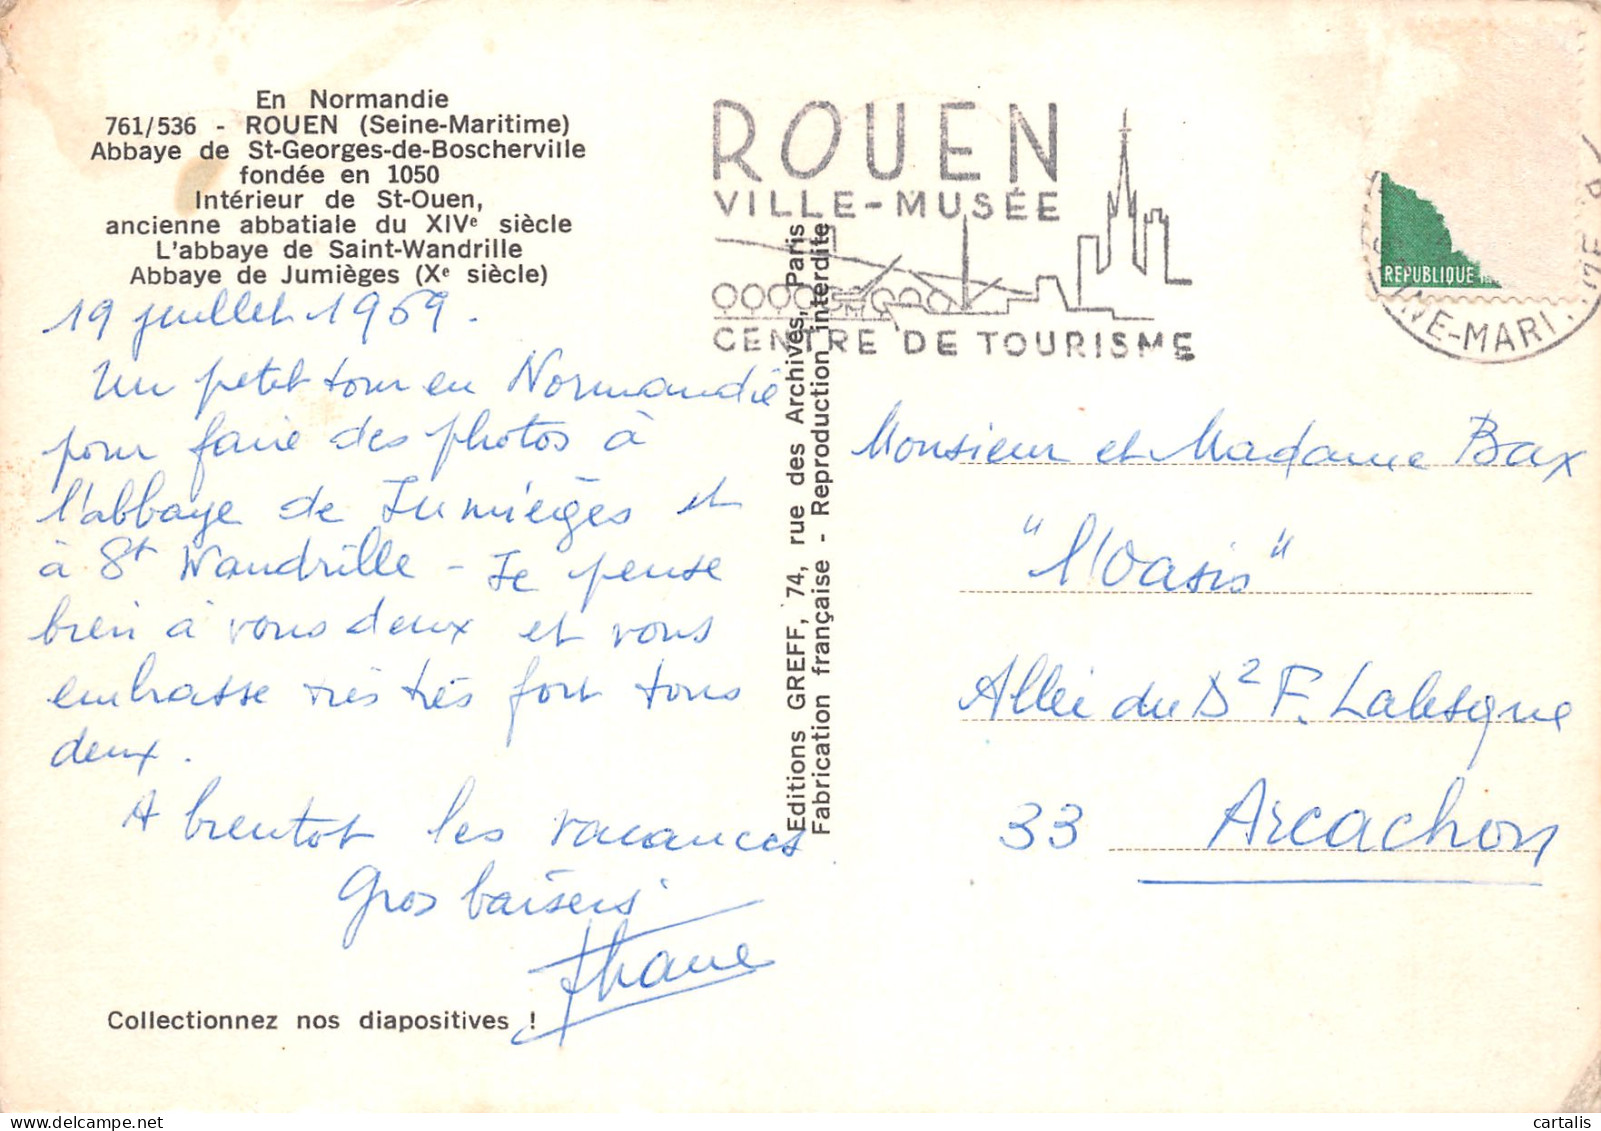 En Normandie
761/536 - ROUEN (Seine-Maritime)
Abbaye de St-Georges-de-Boscherville
fondée en 1050
Intérieur de St-Ouen,
ancienne abbatiale du XIVe siècle
L'abbaye de Saint-Wandrille
Abbaye de Jumièges (Xe siècle)
19 juillet 1969.
Un petit tour en Normandie
pour faire des photos à
l'abbaye de Jumièges et
à St Wandrille - Je pense
bien à vous deux et vous
embrasse très très fort tous
deux.
A bientot les vacances
Gros baisers
Collectionnez nos diapositives !
Editions GREFF, 74, rue des Archives, Paris
Fabrication française - Reproduction interdite
ROUEN
VILLE-MUSÉE
CENTRE DE TOURISME
REPUBLIQUE
INE-MARI
Monsieur et Madame Bax
"l'Oasis"
Allée du Dr F. Lalesque
33 Arcachon
cartalis